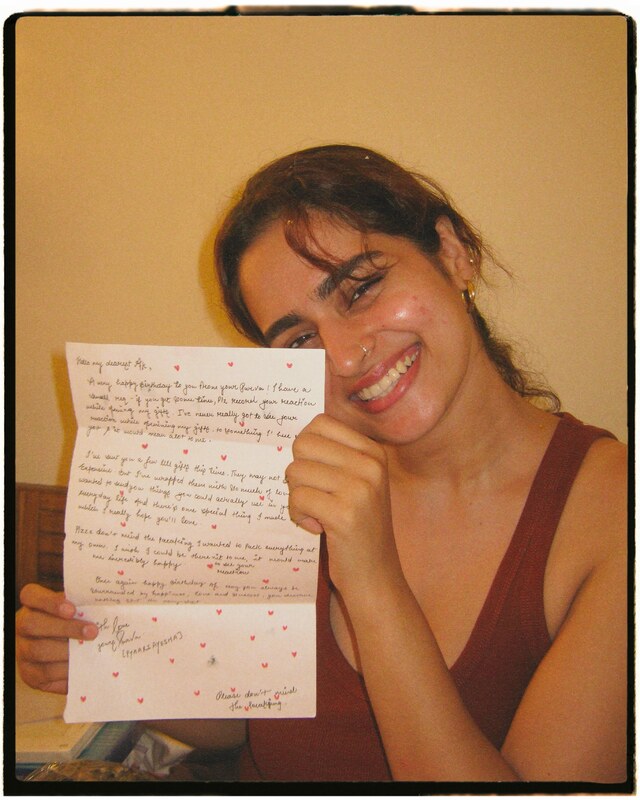 my dearest
A very happy Birthday to you from your : I have a
small req - if you get some time, Plz record your reaction
while opening my gifts. I've never really got to see your
reaction while opening my gifts, so something I
you & it would mean a lot to me.
I've sent you a few lil gifts this time. They may not
expensive but I've wrapped them with so much of
wanted to send you things you could actually use in
everyday life. And there's one special thing I made
which I really hope you'll love.
don't mind the packing, I wanted to pack everything at
my own. I wish I could be there it would make
me incredibly happy. to see your
reaction
Once again happy birthday may you always be
surrounded by happiness, love and success. you deserve
nothing less
with love
your
Please don't mind
the